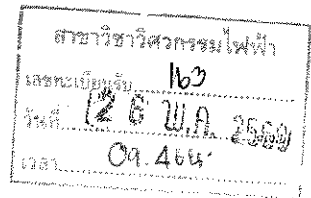 สาขาวิชาวิศวกรรมไฟฟ้า
เลขทะเบียนรับ 163
วันที่ 26 พ.ค. 2569
เวลา 09.46น.